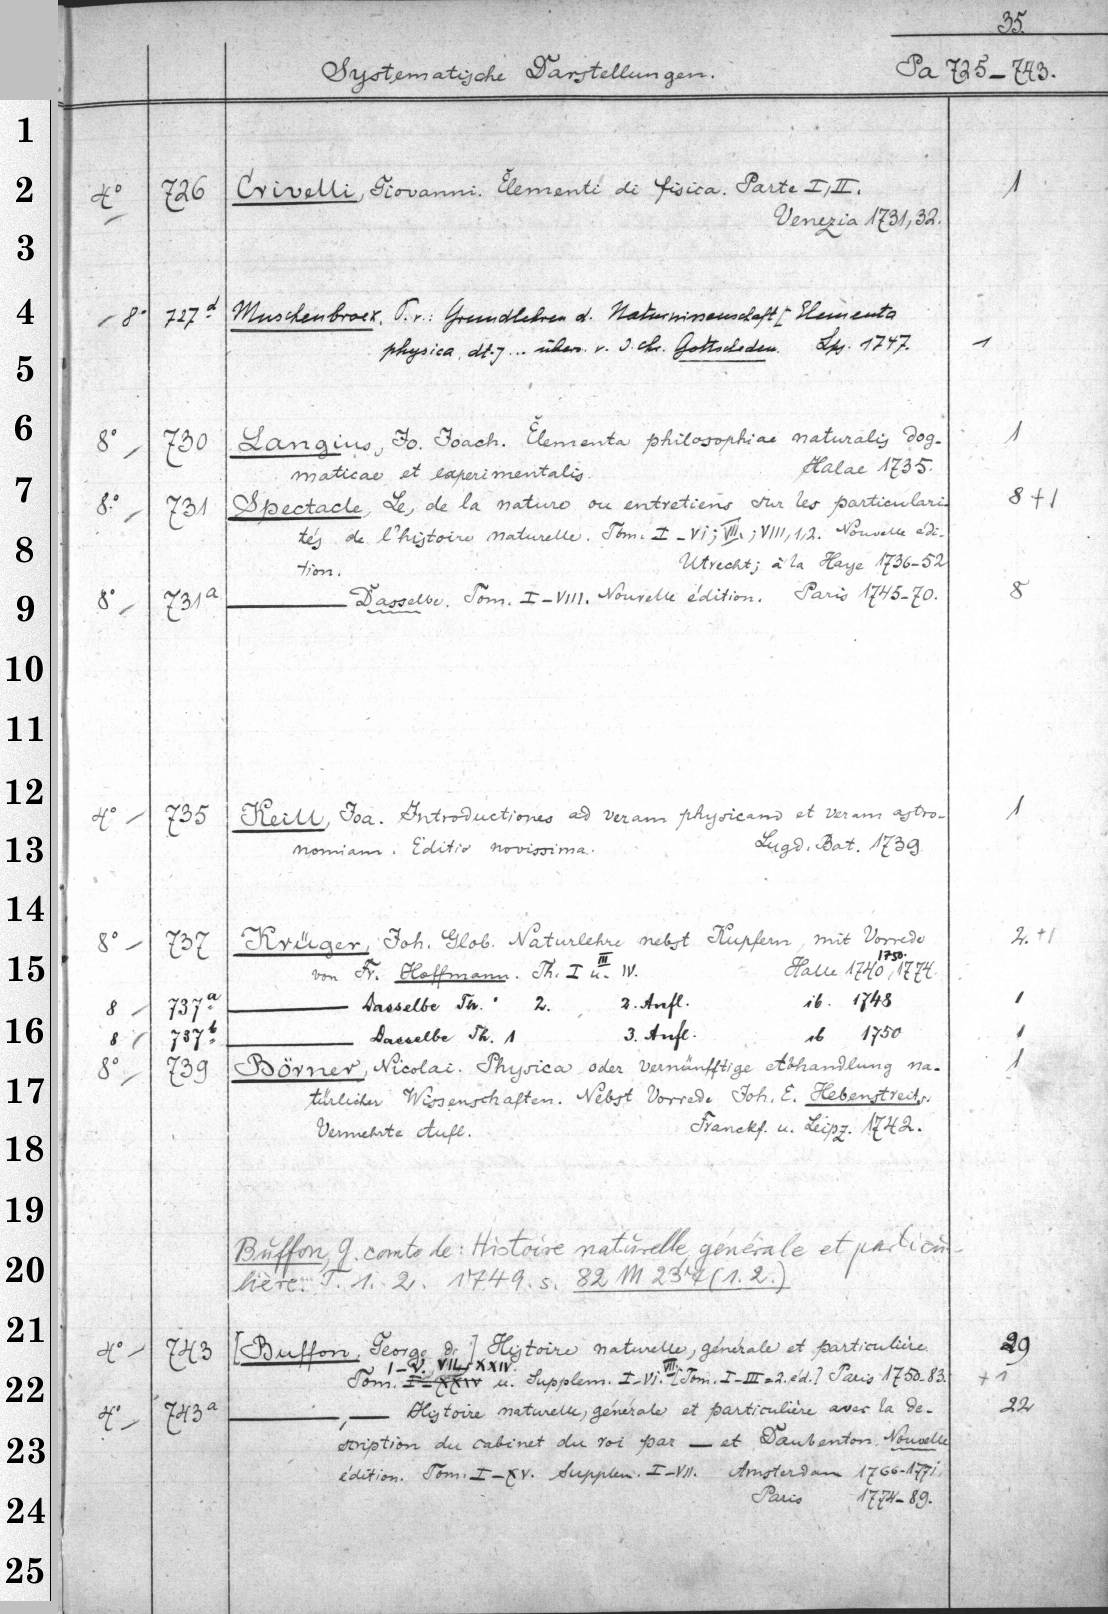 35.
Systematische Darstellungen. Pa 725–743.
1
2 4° 726 Crivelli, Giovanni. Elementi di fisica. Parte I, II. 1
Venezia 1731, 32.
3
4 8° 727d Muschenbroek, P. v.: Grundlehren d. Naturwissenschaft [Elementa
physica, dt.] .. übers. v. J. Ch. Gottscheden. Lpz. 1747. 1
5
6 8° 730 Langius, Jo. Joach. Elementa philosophiae naturalis dog- 1
maticae et experimentalis. Halae 1735.
7 8° 731 Spectacle, Le, de la nature ou entretiens sur les particulari- 8+1
8 tés de l'histoire naturelle. Tom. I–VI; VII; VIII, 1,2. Nouvelle édi-
tion. Utrecht; à la Haye 1736–52
9 8° 731a ——— Dasselbe. Tom. I–VIII. Nouvelle édition. Paris 1745–70. 8
10
11
12 4° 735 Keill, Joa. Introductiones ad veram physicam et veram astro- 1
13 nomiam. Editio novissima. Lugd. Bat. 1739
14
8° 737 Krüger, Joh. Glob. Naturlehre nebst Kupfern, mit Vorrede 2.+1
15 von Fr. Hoffmann. Th. I u. III IV. Halle 1740, 1750. 1774.
8 737a ——— Dasselbe Th. 2. 2. Aufl. ib. 1748 1
16 8 737b ——— Dasselbe Th. 1 3. Aufl. ib 1750 1
8° 739 Börner, Nicolai. Physica oder vernünfftige Abhandlung na- 1
17 türlicher Wissenschaften. Nebst Vorrede Joh. E. Hebenstreits.
Vermehrte Aufl. Franckf. u. Leipz. 1742.
18
19
Buffon, G. comte de: Histoire naturelle, générale et particu-
20 lière. T. 1. 2. 1749. s. 82 M 237 (1. 2.)
21 4° 743 [Buffon, George de] Histoire naturelle, générale et particulière 29
I–V. VII–XXIV.
22 Tom. I–XXIV u. Supplem. I–VI. VII. [Tom. I–III = 2. éd.] Paris 1750–83. +1
4° 743a ———, — Histoire naturelle, générale et particulière avec la de- 22
23 scription du cabinet du roi par — et Daubenton. Nouvelle
édition. Tom. I–XV. Supplem. I–VII. Amsterdam 1766–1771.
24 Paris 1774–89.
25